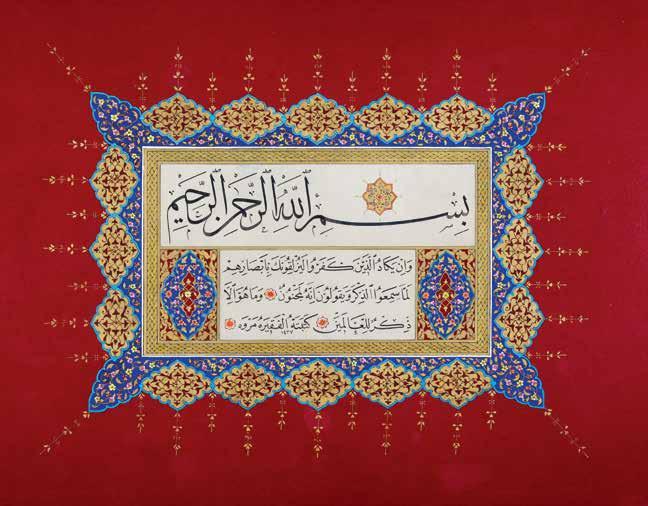 بِسْمِ اللّٰهِ الرَّحْمٰنِ الرَّحِيمِ
وَاِنْ يَكَادُ الَّذِينَ كَفَرُوا لَيُزْلِقُونَكَ بِاَبْصَارِهِمْ
لَمَّا سَمِعُوا الذِّكْرَ وَيَقُولُونَ اِنَّهُ لَمَجْنُونٌ وَمَا هُوَ اِلَّا
ذِكْرٌ لِلْعَالَمِينَ كَتَبَتْهُ الْفَقِيرَه مَرْوَه ١٤٣٧